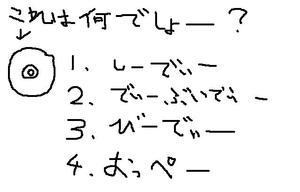 これは何でしょー?
1. しーでぃー
2. でぃーぶいでぃー
3. びーでぃー
4. おっぺー